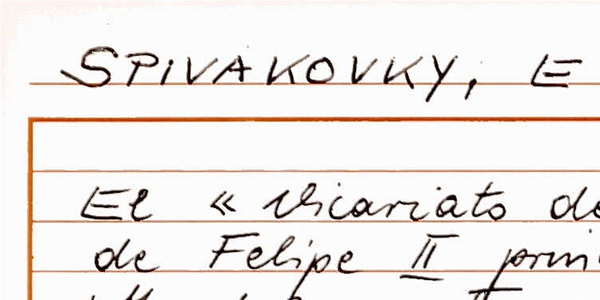 SPIVAKOVKY, E
El « Vicariato de
de Felipe II